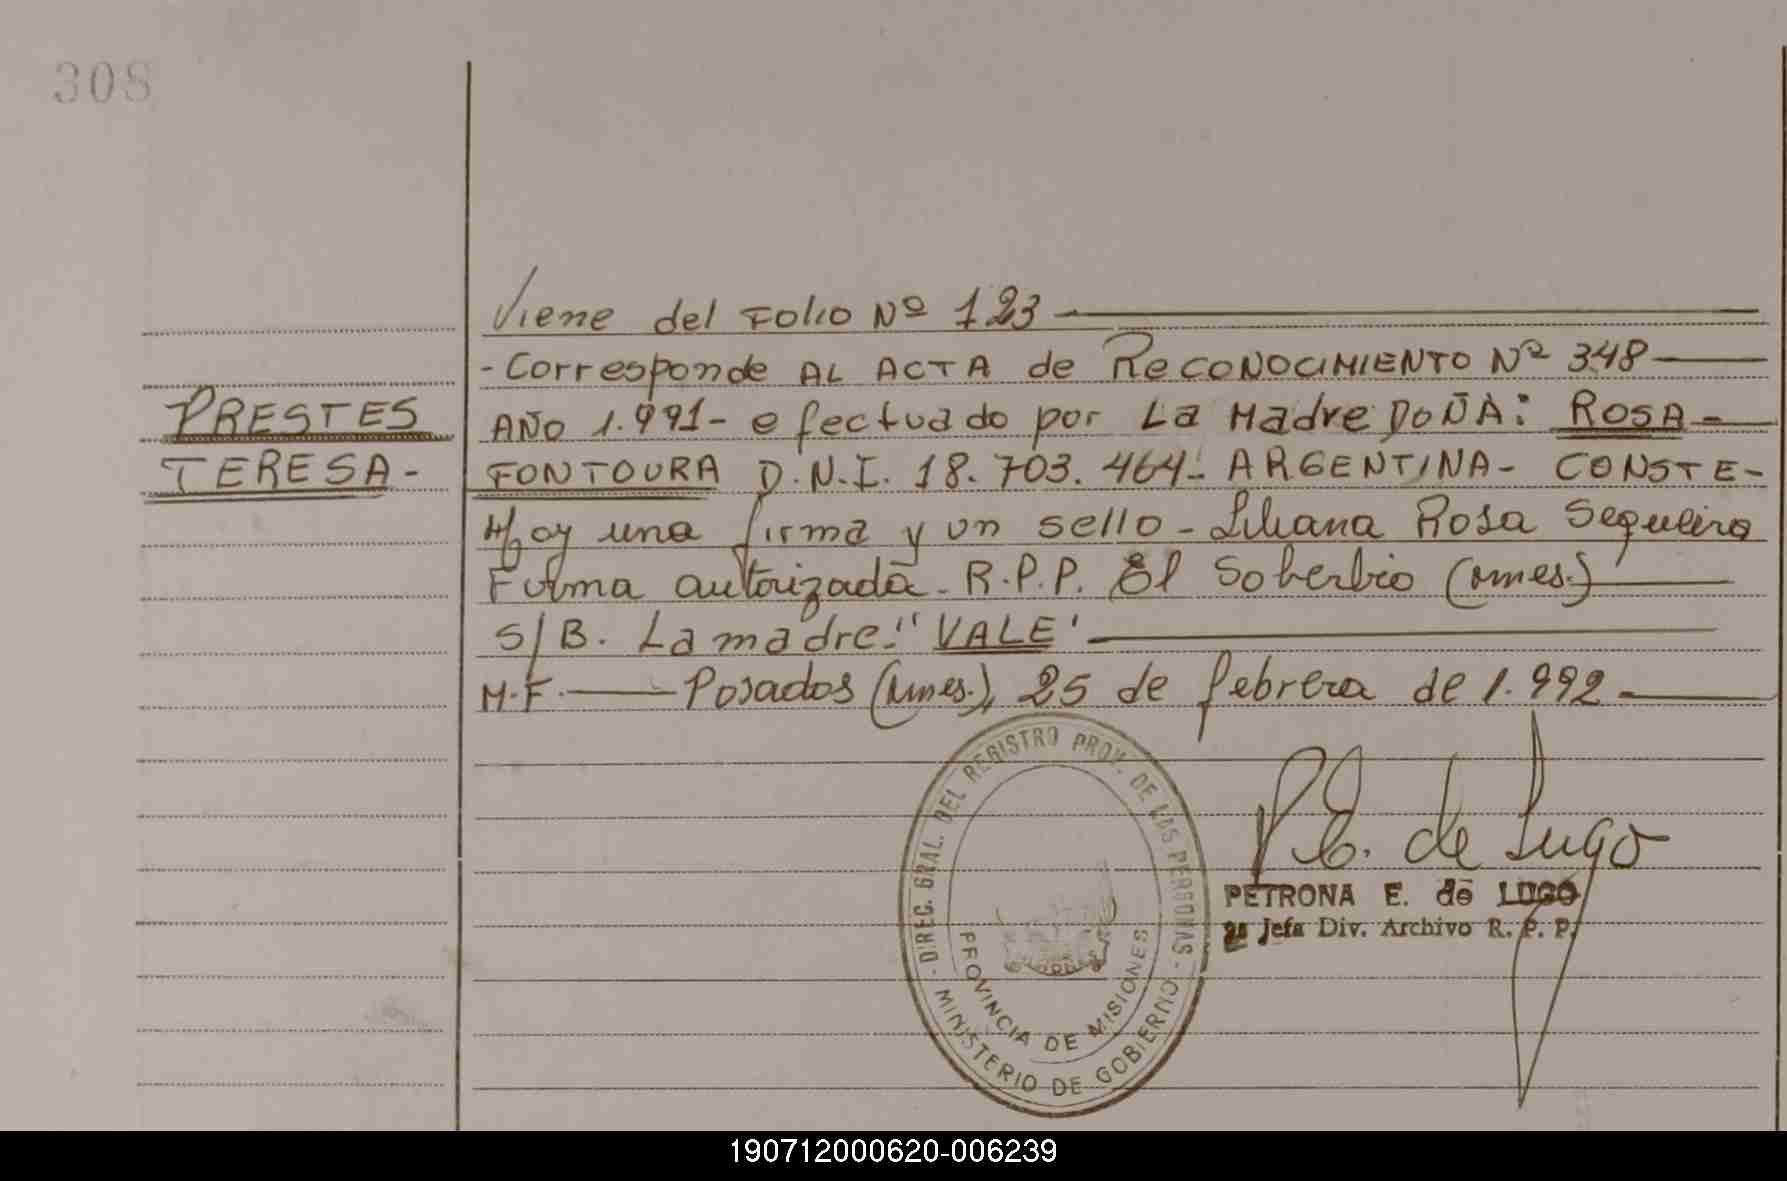 308
Viene del Folio Nº 123
- Corresponde AL ACTA de RECONOCIMIENTO Nº 348
PRESTES
AÑO 1.991- efectuado por La Madre DOÑA: ROSA -
TERESA -
FONTOURA D.N.I. 18.703.464- ARGENTINA - CONSTE -
Hoy una firma y un sello - Liliana Rosa Sequeira
Firma autorizada - R.P.P. El Soberbio (mnes.)
S/B. La madre: "VALE"
M.F. Posadas (mnes.), 25 de febrero de 1.992
DIREC. GRAL. DEL REGISTRO PROV. DE LAS PERSONAS - MINISTERIO DE GOBIERNO -
PROVINCIA DE MISIONES
P.E. de Lugo
PETRONA E. de LUGO
Jefa Div. Archivo R. P. P.
190712000620-006239